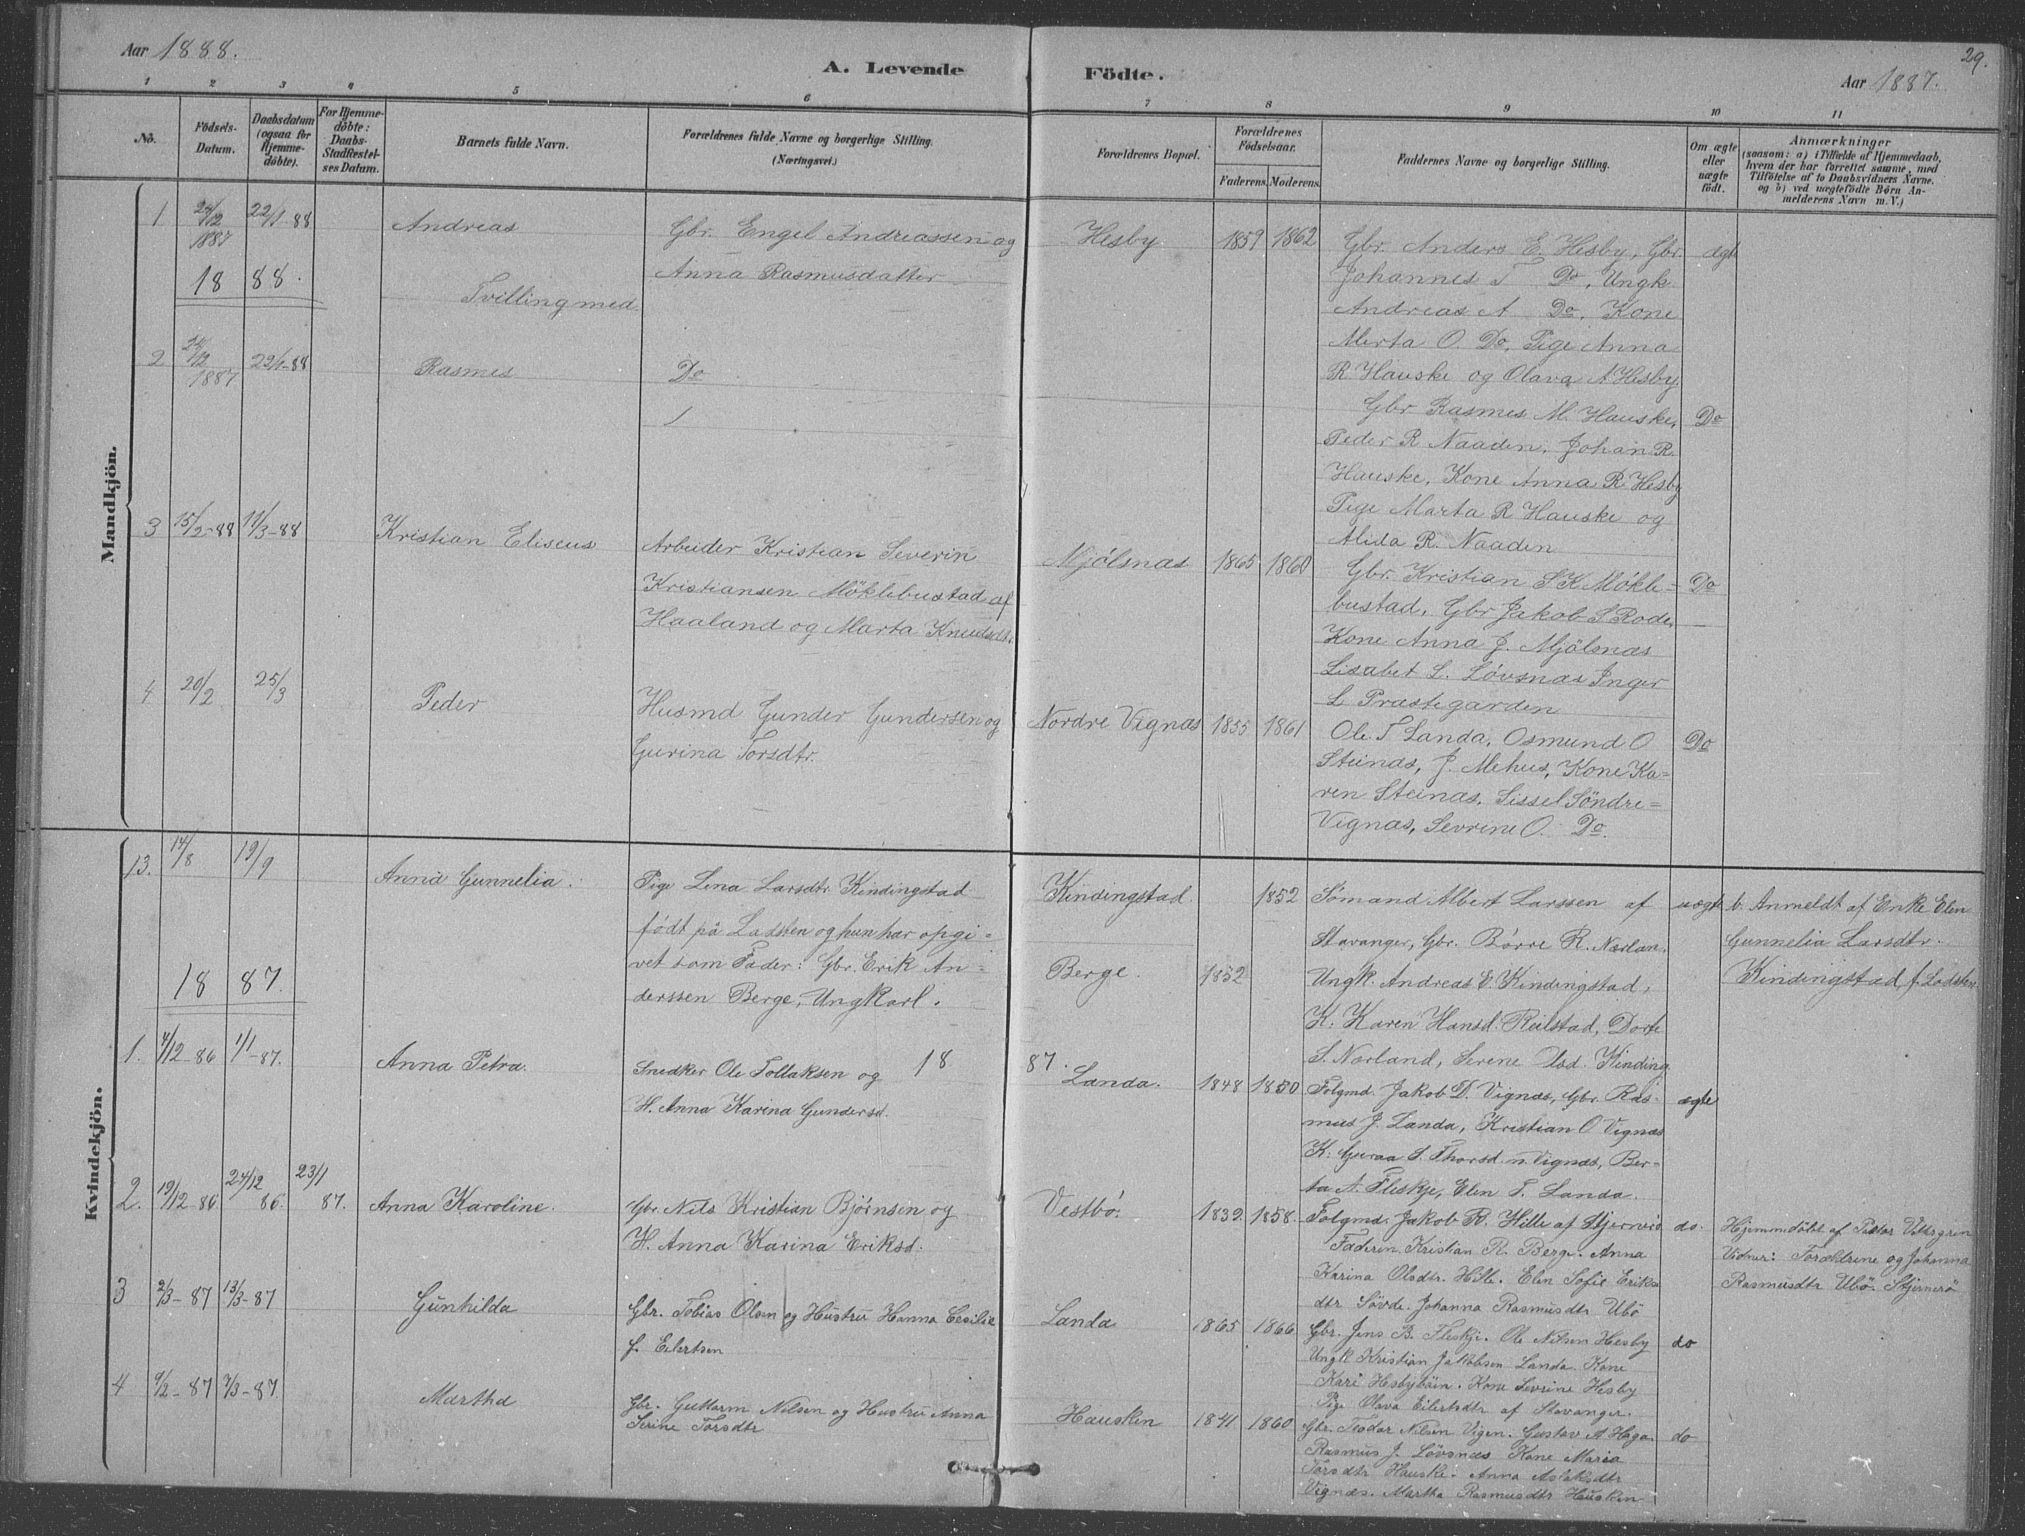 Aar 1888.
A. Levende Födte.
Aar 1887.
29.
1 2 3 4 5 6 7 8 9 10 11
No.
Födsels-Datum.
Daabsdatum (ogsaa for Hjemme-döbte).
For Hjemme-döbte: Daabs-Stadfæstel-ses Datum.
Barnets fulde Navn.
Forældrenes fulde Navne og borgerlige Stilling. (Næringsvei.)
Forældrenes Bopæl.
Forældrenes Födselsaar.
Faderens. Moderens.
Faddernes Navne og borgerlige Stilling.
Om ægte eller uægte födt.
Anmærkninger
(saasom: a) i Tilfælde af Hjemmedaab,
hvem der har forrettet samme, med
Tilföielse af to Daabsvidners Navne.
og b) ved uægtefödte Börn An-
melderens Navn m. V.)
Mandkjön.
1 24/12 1887 22/1-88 Andreas
Gbr. Engel Andreassen og
Anna Rasmusdatter
Hesby 1859 1862
Gbr. Anders E. Hesby, Gbr.
Johannes T Do, Ungk
Andreas A Do. Kone
Merta O. Do, Pige Anna
R. Hauske og Olava A Hesby
ægte
1888.
Tvilling med
2 24/12 1887 22/1-88 Rasmes
Do
Gbr Rasmes M. Hauske,
Peder R Naaden, Johan R.
Hauske, Kone Anna R Hesby
Pige Marta R Hauske og
Alida R. Naaden
Do
3 15/2-88 11/3-88 Kristian Eliseus
Arbeider Kristian Severin
Kristiansen Möklebustad af
Haaland og Marta Knudsdtr.
Mjölsnas 1865 1860
Gbr. Kristian S K Mökle-
bustad, Gbr Jakob S Rode,
Kone Anna J. Mjölsnas
Lisabet L. Lövsnas Inger
L Prastegarden
Do
4 20/2 25/3 Peder
Husmd Gunder Gundersen og
Gurina Torsdtr.
Nordre Vignas 1855 1861
Ole T Landa, Osmund O
Steinas, J. Mehus, Kone Ka-
ren Steinas, Sissel Söndre-
Vignas, Sevrine O. Do.
Do
Kvindekjön.
13. 14/8 19/9 Anna Gunnelia.
Pige Lena Larsdtr Kindingstad
født på Ladsten og hun har opgi-
vet som Fader: Gbr. Erik An-
derssen Berge, Ungkarl.
Kindingstad. 1852
Berge. 1832
Sömand Albert Larssen af
Stavanger, Gbr. Börre R. Nærlan.
Ungk. Andreas E. Kindingstad,
K. Karen Hansd. Reilstad, Dorte
S. Nærland, Serine Kinding
uægte
b. Anmeldt af Enke Elen
Gunnelia Larsdtr.
Kindingstad, f. Ladsten
1887.
1. 4/12-86 1/1-87. Anna Petra.
Snedker Ole Tollaksen og
H. Anna Karina Gundersd.
1887.
Landa. 1848 1850
Folgmd. Jakob D. Vignæs, Gbr. Ras-
mus J. Landa, Kristian O Vignæs
K. Guraa S. Thorsd. n. Vignæs, Ber-
ta A. Fleskje, Elen T. Landa.
ægte
2. 19/12-86 24/12 86. 23/1 87. Anna Karoline.
Gbr. Nils Kristian Bjørnsen og
H. Anna Karina Eriksd.
Vestbö. 1832 1858
Folgmd. Jakob R. Hille af Stjernrö
Faderen Kristian R. Berge. Anna
Karina Olsdtr. Hille. Elen Sofie Eriks
dtr Sövde. Johanna Rasmusdtr Ubö
do.
Hjemmedöbt af
Vidner: Forældrene og Johanna
Rasmusdtr Ubö. Stjernerö
3 2/3-87 13/3-87 Gunhilda
Gbr. Tobias Olsen og Hustru Hanna Cesilie
f. Eilertsen
Landa 1865 1866
Gbr. Jens B. Fleskje. Ole Nilsen Hesby
Ungk Kristian Jakobsen Landa. Kone
Kari Hesbyböen. Kone Sevrine Hesby
Pige Olava Eilertsdtr af Stavanger.
do
4 9/2-87 7/3-87. Martha
Gbr. Guttorm Nilsen og Hustru Anna
Serine Torsdtr
Hausken 1841 1860
Gbr. Teodor Nilsen Vigen. Gustav A Haga.
Rasmus J. Lövsnæs Kone Maria
Torsdtr Hauske. Anna Aslaksdtr
Vignæs. Martha Rasmusdtr Hausken
do